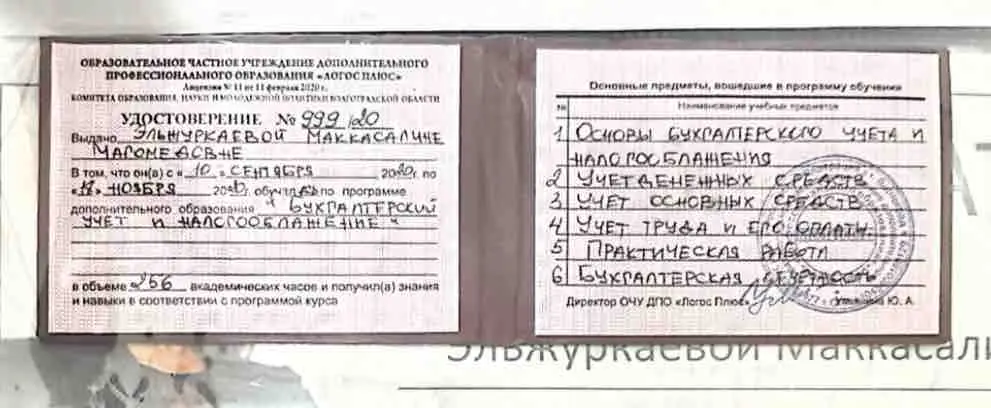 ОБРАЗОВАТЕЛЬНОЕ ЧАСТНОЕ УЧРЕЖДЕНИЕ ДОПОЛНИТЕЛЬНОГО
ПРОФЕССИОНАЛЬНОГО ОБРАЗОВАНИЯ «ЛОГОС ПЛЮС»
Лицензия № 11 от 11 февраля 2020 г.
КОМИТЕТА ОБРАЗОВАНИЯ, НАУКИ И МОЛОДЕЖНОЙ ПОЛИТИКИ ВОЛГОГРАДСКОЙ ОБЛАСТИ
УДОСТОВЕРЕНИЕ № 999/20
Выдано ЭЛЬЖУРКАЕВОЙ МАККАСАЛИНЕ
МАГОМЕДСВНЕ
В том, что он(а) с « 10 » СЕНТЯБРЯ 2020г. по
НОЯБРЯ 2020г. обучалась по программе
дополнительного образования " БУХГАЛТЕРСКИЙ
УЧЕТ И НАЛОГООБЛАЖЕНИЕ "
в объеме 256 академических часов и получил(а) знания
и навыки в соответствии с программой курса
Основные предметы, вошедшие в программу обучения
№ Наименование учебных предметов
1 ОСНОВЫ БУХГАЛТЕРСКОГО УЧЕТА И
НАЛОГООБЛАЖЕНИЯ
2 УЧЕТ ДЕНЕЖНЫХ СРЕДСТВ
3 УЧЕТ ОСНОВНЫХ СРЕДСТВ
4 УЧЕТ ТРУДА И ЕГО ОПЛАТЫ
5 ПРАКТИЧЕСКАЯ РАБОТА
6 БУХГАЛТЕРСКАЯ
Директор ОЧУ ДПО «Логос Плюс» Ю. А.
Эльжуркаевой Маккасали